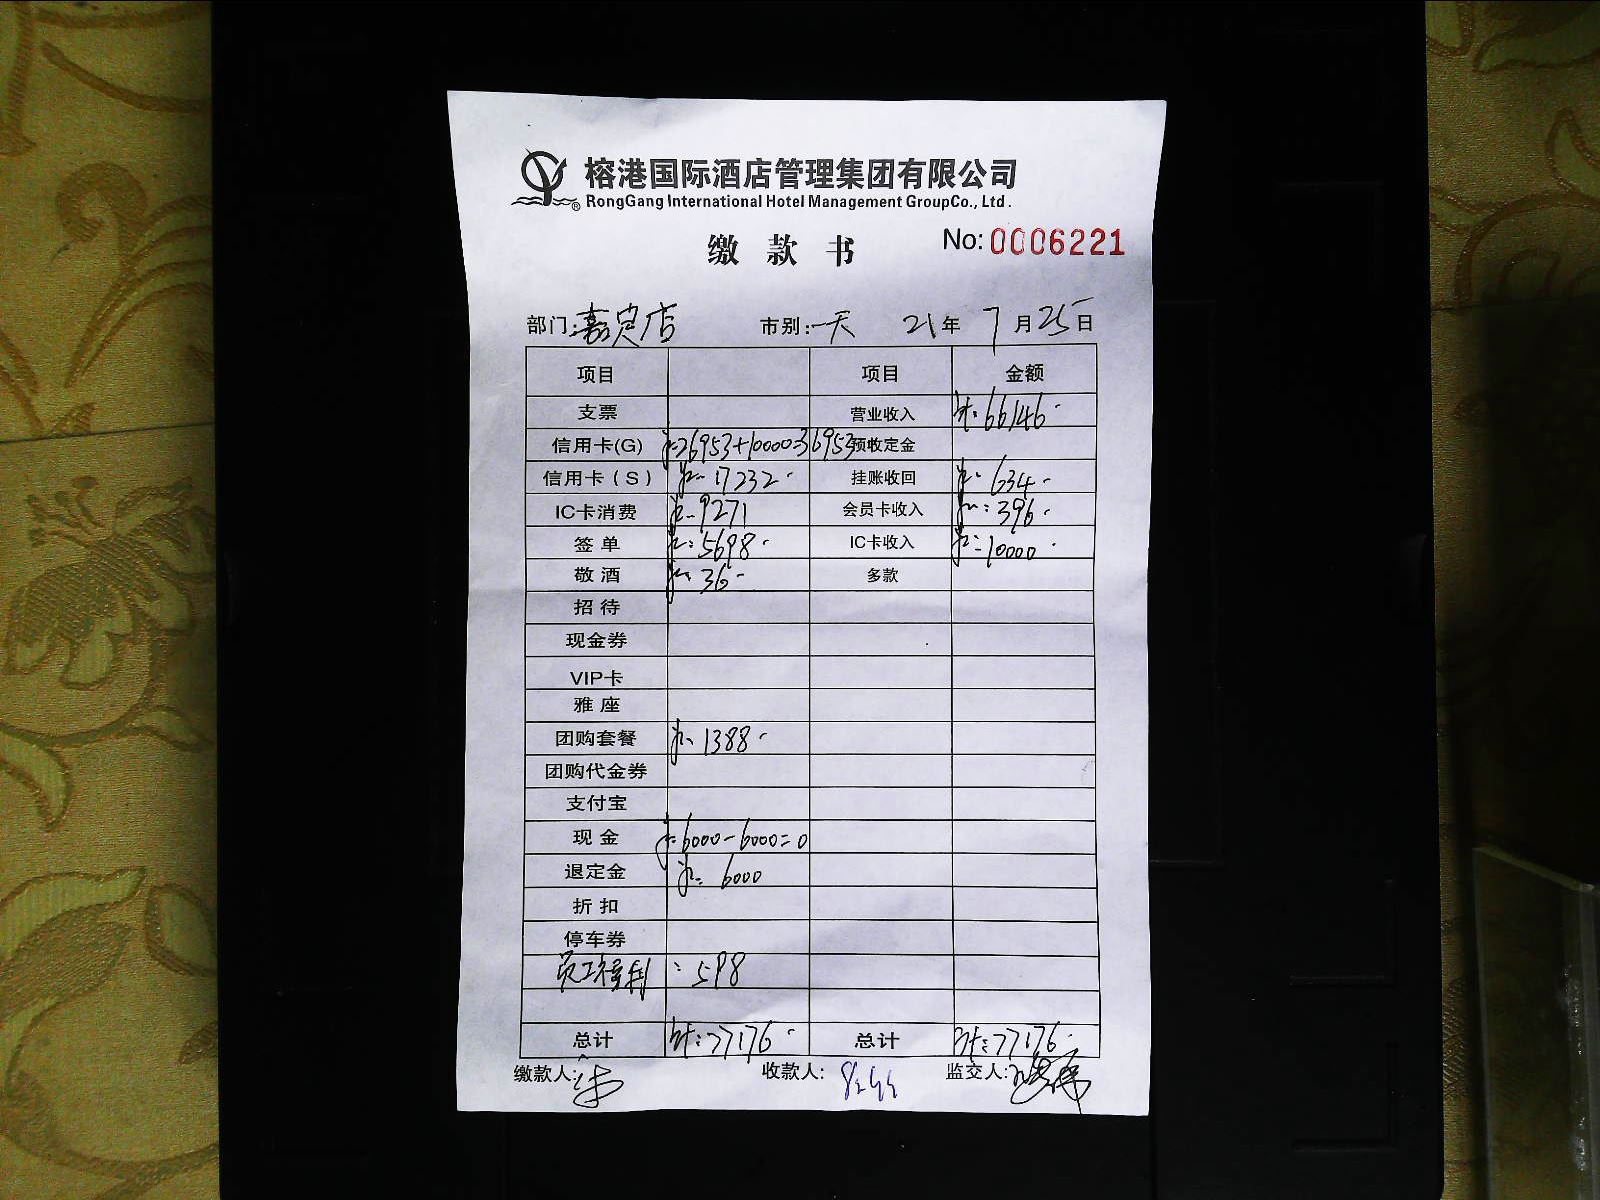 榕港国际酒店管理集团有限公司
®RongGang International Hotel Management GroupCo., Ltd.
缴 款 书 No: 0006221
部门: 嘉定店 市别: 一天 21年 7月25日
项目 项目 金额
支票 营业收入 计: 66146
信用卡(G) 26953+10000=36953 预收定金
信用卡(S) 17232 挂账收回 634
IC卡消费 9271 会员卡收入 : 396
签 单 : 5698 IC卡收入 : 10000
敬 酒 36 多款
招 待
现金券
VIP卡
雅 座
团购套餐 1388
团购代金券
支付宝
现 金 : 6000-6000=0
退定金 6000
折 扣
停车券
员工福利 : 598
总计 计: 77176 总计 计: 77176
缴款人: 收款人: 监交人: